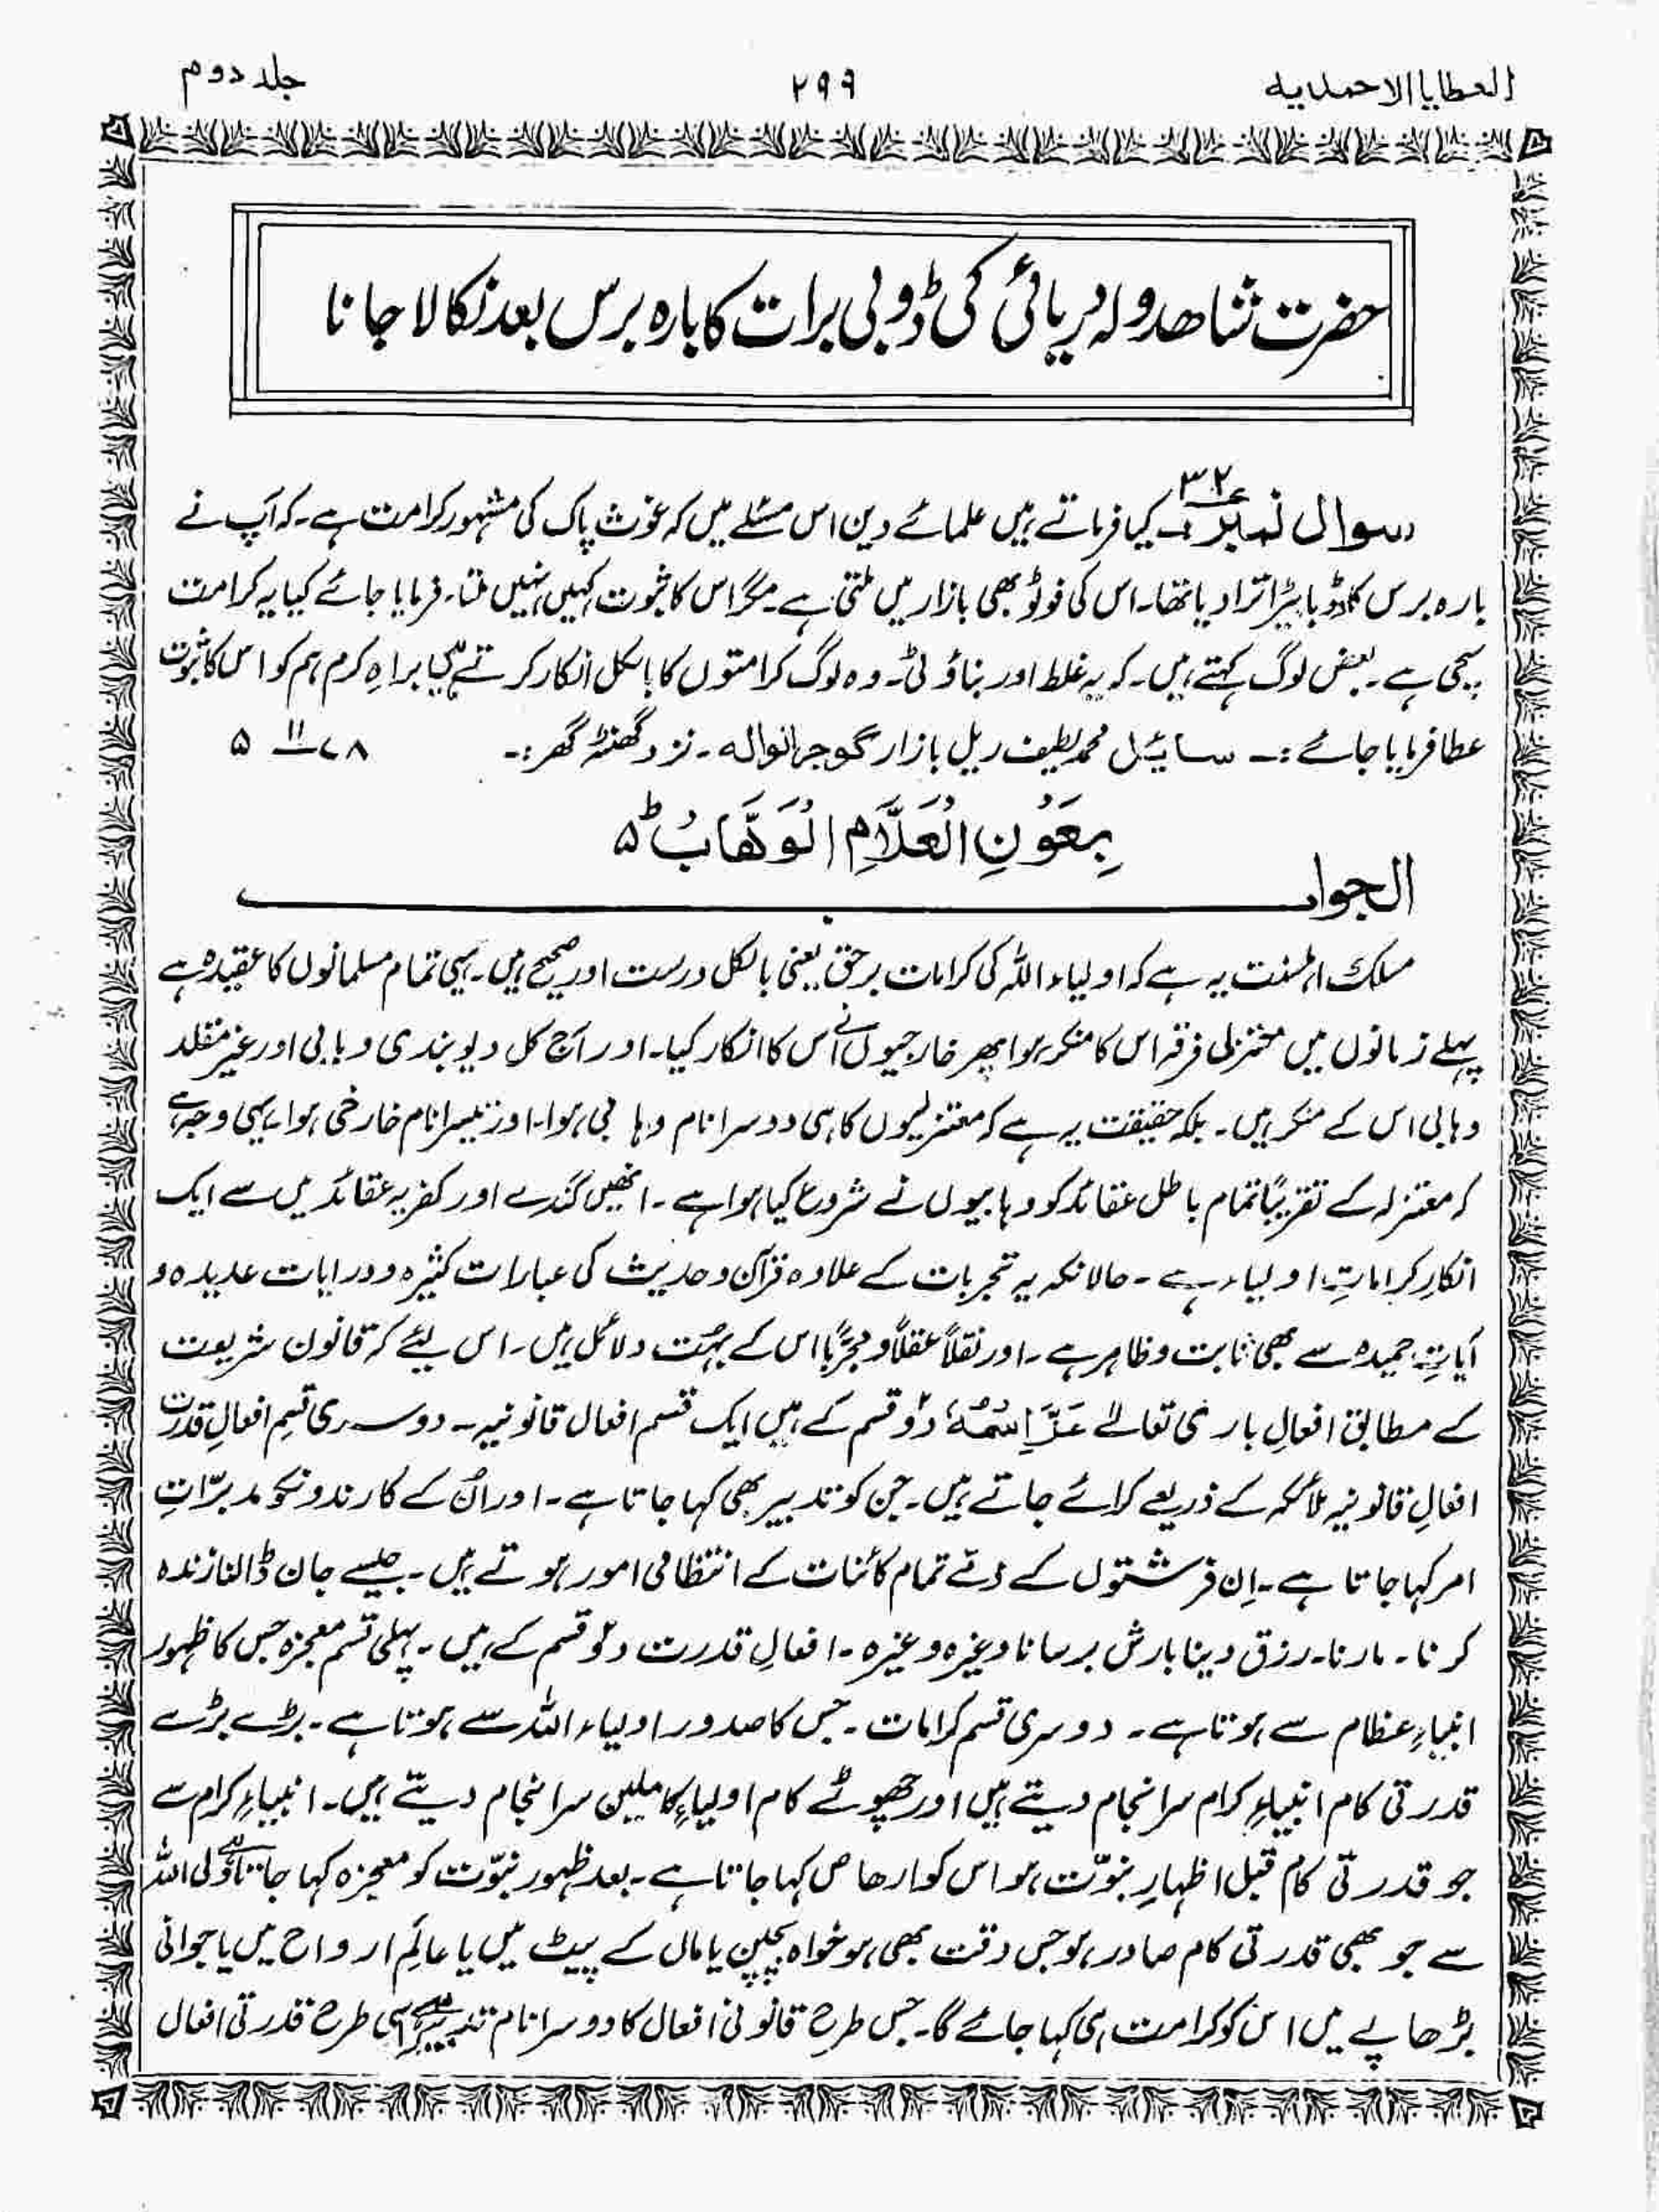 العطایا الاحمدیه ۲۹۹ جلد دوم
حضرت شاھدولہ دریائی کی ڈوبی برات کا بارہ برس بعد نکالا جانا
سوال نمبر ۳۲ کیا فرماتے ہیں علمائے دین اس مسئلے میں کہ غوث پاک کی مشہور کرامت ہے۔ کہ آپ نے
بارہ برس کا ڈوبا بیڑا ترا دیا تھا۔ اس کی فوٹو بھی بازار میں ملتی ہے۔ مگر اس کا ثبوت کہیں نہیں ملتا۔ فرمایا جائے کیا یہ کرامت
سچی ہے۔ بعض لوگ کہتے ہیں۔ کہ یہ غلط اور بناؤٹی۔ وہ لوگ کرامتوں کا بالکل انکار کرتے ہیں براہِ کرم ہم کو اس کا ثبوت
عطا فرمایا جائے :۔ سائیل محمد لطیف ریل بازار گوجرانوالہ۔ نزد گھنٹہ گھر :۔ ۵ ۱۱ ۷۸
بِعَوْنِ الْعَلَّامِ الْوَھَّابُ ط ۵
الجواب
مسلک اہلسنت یہ ہے کہ اولیاء اللہ کی کرامات برحق یعنی بالکل درست اور صحیح ہیں۔ یہی تمام مسلمانوں کا عقیدہ ہے
پہلے زمانوں میں معتزلی فرقہ اس کا منکر ہوا پھر خارجیوں نے اس کا انکار کیا۔ اور آج کل دیوبندی وہابی اور غیر مقلد
وہابی اس کے منکر ہیں۔ بلکہ حقیقت یہ ہے کہ معتزلیوں کا ہی دوسرا نام وہابی ہوا۔ اور تیسرا نام خارجی ہوا۔ یہی وجہ ہے
کہ معتزلہ کے تقریباً تمام باطل عقائد کو وہابیوں نے شروع کیا ہوا ہے۔ انھیں گندے اور کفریہ عقائد میں سے ایک
انکارِ کراماتِ اولیاء ہے۔ حالانکہ یہ تجربات کے علاوہ قرآن و حدیث کی عبارات کثیرہ و درایات عدیدہ و
آیاتِ حمیدہ سے بھی ثابت و ظاہر ہے۔ اور نقلاً عقلاً و تجرِبًا اس کے بہُت دلائل ہیں۔ اس لیئے کہ قانون شریعت
کے مطابق افعالِ باری تعالےٰ عَزَّ اِسْمُہٗ دوّ قسم کے ہیں ایک قسم افعال قانونیہ۔ دوسری قسمِ افعالِ قدرت
افعالِ قانونیہ ملائکہ کے ذریعے کرائے جاتے ہیں۔ جن کو تدبیر بھی کہا جاتا ہے۔ اور اُن کے کارندونکو مدبرّاتِ
امر کہا جاتا ہے۔ اِن فرشتوں کے ذمّے تمام کائنات کے انتظامی امور ہوتے ہیں۔ جیسے جان ڈالنا زندہ
کرنا۔ مارنا۔ رزق دینا بارش برسانا وغیرہ وغیرہ۔ افعالِ قدرت دوّ قسم کے ہیں۔ پہلی قسم معجزہ جس کا ظہور
انبیاءِ عظام سے ہوتا ہے۔ دوسری قسم کرامات۔ جس کا صدور اولیاء اللہ سے ہوتا ہے۔ بڑے بڑے
قدرتی کام انبیاءِ کرام سرانجام دیتے ہیں اور چھوٹے کام اولیاءِ کاملین سرانجام دیتے ہیں۔ انبیاءِ کرام سے
جو قدرتی کام قبل اظہارِ نبوّت ہو اس کو ارھاص کہا جاتا ہے۔ بعد ظہور نبوّت کو معجزہ کہا جاتا ہے ولی اللہ
سے جو بھی قدرتی کام صادر ہو جس وقت بھی ہو خواہ بچپن یا ماں کے پیٹ میں یا عالَمِ ارواح میں یا جوانی
بڑھاپے میں اس کو کرامت ہی کہا جائے گا۔ جس طرح قانونی افعال کا دوسرا نام تدبیر ہے اسی طرح قدرتی افعال